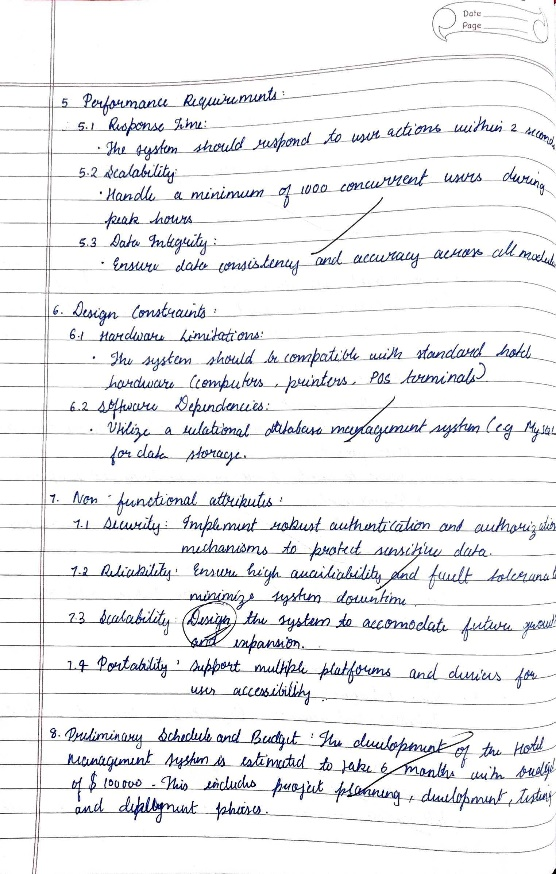 Date
Page
5 Performance Requirements:
5.1 Response Time:
• The system should respond to user actions within 2 second
5.2 Scalability:
• Handle a minimum of 1000 concurrent users during
peak hours
5.3 Data Integrity:
• Ensure data consistency and accuracy across all module
6. Design Constraints:
6.1 Hardware Limitations:
• The system should be compatible with standard hotel
hardware (computers, printers, POS terminals)
6.2 Software Dependencies:
• Utilize a relational database management system (eg MySQL
for data storage.
7. Non-functional attributes:
7.1 Security: Implement robust authentication and authorization
mechanisms to protect sensitive data.
7.2 Reliability: Ensure high availability and fault tolerance
minimize system downtime.
7.3 Scalability: Design the system to accomodate future growth
and expansion.
7.4 Portability: Support multiple platforms and devices for
user accessibility
8. Preliminary Schedule and Budget: The development of the Hotel
Management System is estimated to take 6 months with budget
of $ 100000. This includes project planning, development, testing
and deployment phases.